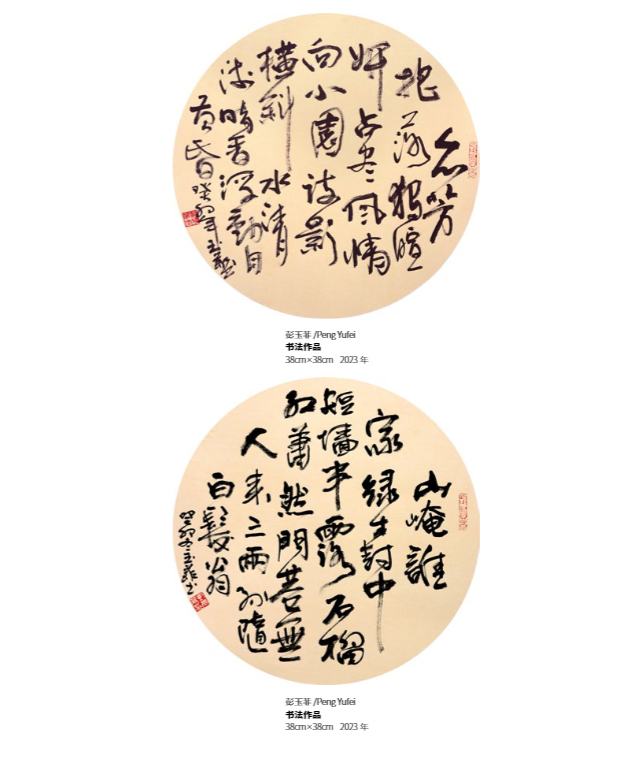 众芳
摇落獨暄
妍占尽風情
向小園疏影
横斜水清
浅暗香浮動月
黄昏癸卯年玉菲书
彭玉菲 /Peng Yufei
书法作品
38cm×38cm 2023 年
山崦誰
家緑樹中
短墙半露石榴
红蕭然門巷無
人来三兩孙隨
白髮翁
癸卯冬玉菲书
彭玉菲 /Peng Yufei
书法作品
38cm×38cm 2023 年